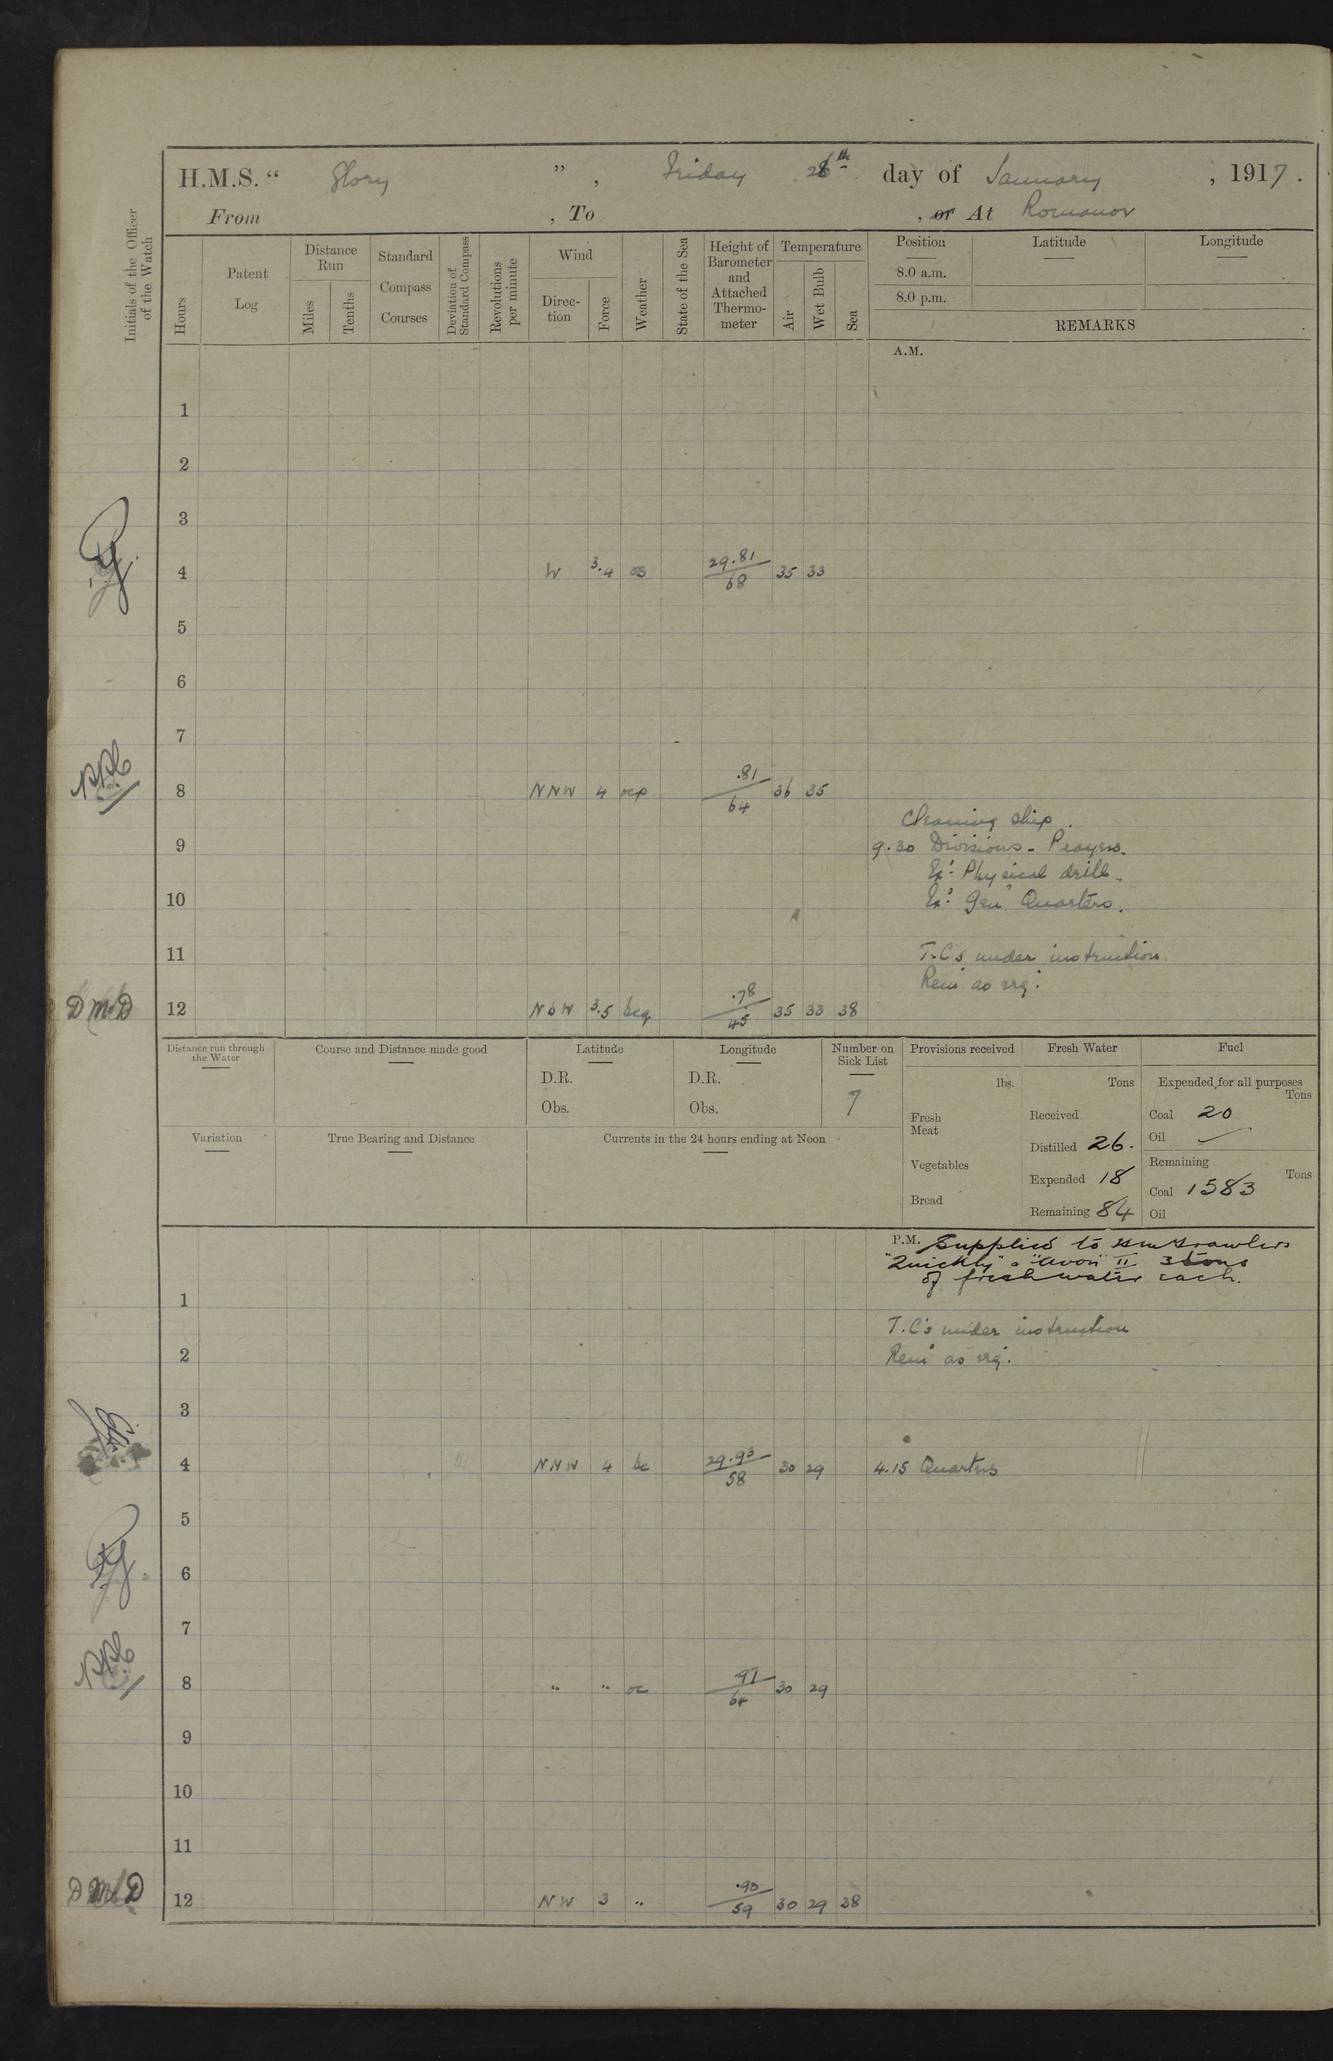 H.M.S. “ Glory ” , Friday 26th day of January , 1917 .
From , To , or At Romanov
Initials of the Officer of the Watch
Hours
Patent Log
Distance Run
Miles
Tenths
Standard Compass Courses
Deviation of Standard Compass
Revolutions per minute
Wind
Direc-tion
Force
Weather
State of the Sea
Height of Barometer and Attached Thermo-meter
Temperature
Air
Wet Bulb
Sea
Position
8.0 a.m.
8.0 p.m.
Latitude
Longitude
REMARKS
A.M.
1
2
3
4 W 3.4 os 29.81 68 35 33
5
6
7
8 NNW 4 ocp .81 64 36 35
Cleaning ship.
9 9.30 Divisions - Prayers.
Ex: Physical drill.
10 Ex: Gen Quarters.
11 T.C's under instruction.
Rem as req:
D McD 12 N b W 3.5 bcq .78 45 35 33 38
Distance run through the Water
Course and Distance made good
Latitude
D.R.
Obs.
Longitude
D.R.
Obs.
Number on Sick List
7
Provisions received
lbs.
Fresh Meat
Vegetables
Bread
Fresh Water
Tons
Received
Distilled 26.
Expended 18
Remaining 84
Fuel
Expended for all purposes
Tons
Coal 20
Oil
Remaining
Tons
Coal 1583
Oil
Variation
True Bearing and Distance
Currents in the 24 hours ending at Noon
P.M. Supplied to trawlers
"Quickly" & "Avon" II 3 tons
of freshwater each.
1
T.C's under instruction
2 Rem as req:
3
4 NNW 4 bc 29.93 58 30 29 4.15 Quarters
5
6
7
8 " " oc .97 64 30 29
9
10
11
D McD 12 NW 3 " .90 59 30 29 38